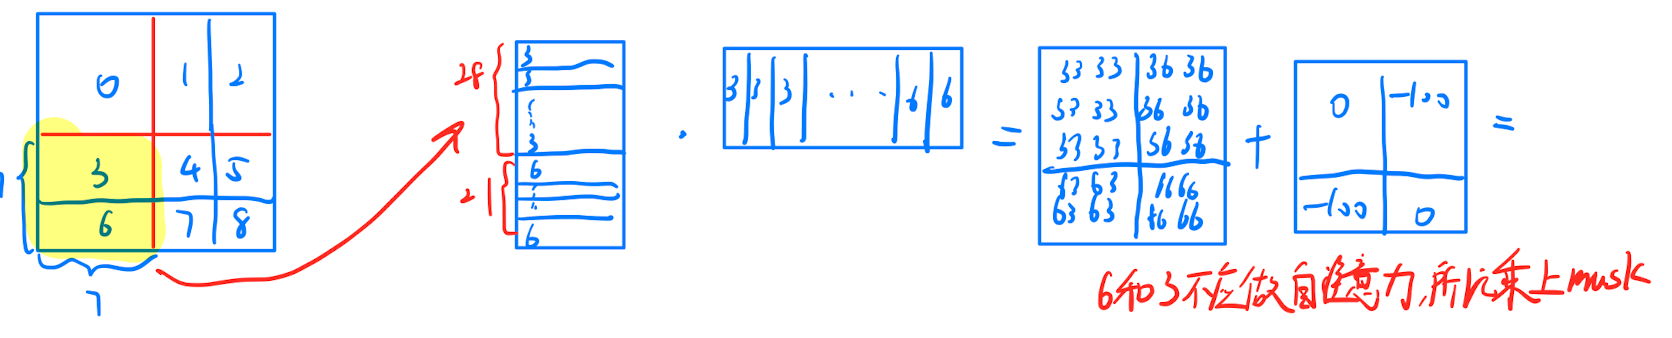 0 1 2
3 4 5
6 7 8
7
7
28
21
3
3
3
6
6
·
3 3 3 ... 6 6
=
33 33 36 36
33 33 36 36
33 33 36 36
63 63 66 66
63 63 66 66
+
0 -100
-100 0
=
6和3不应做自注意力,所以乘上mask